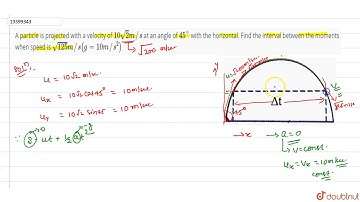 19399343
A particle is projected with a velocity of 10√2 m/s at an angle of 45° with the horizontal. Find the interval between the moments
when speed is √125 m/s (g = 10m/s²)
↳ √200 m/sec
Solⁿ:
u = 10√2 m/sec
uₓ = 10√2 cos45° = 10 m/sec
u_y = 10√2 sin45 = 10 m/sec
∵ S = ut + ½ at²
y
45°
Δt
→ x
→ a = 0
↳ v = const.
uₓ = vₓ = 10 m/sec
const.
doubtnut